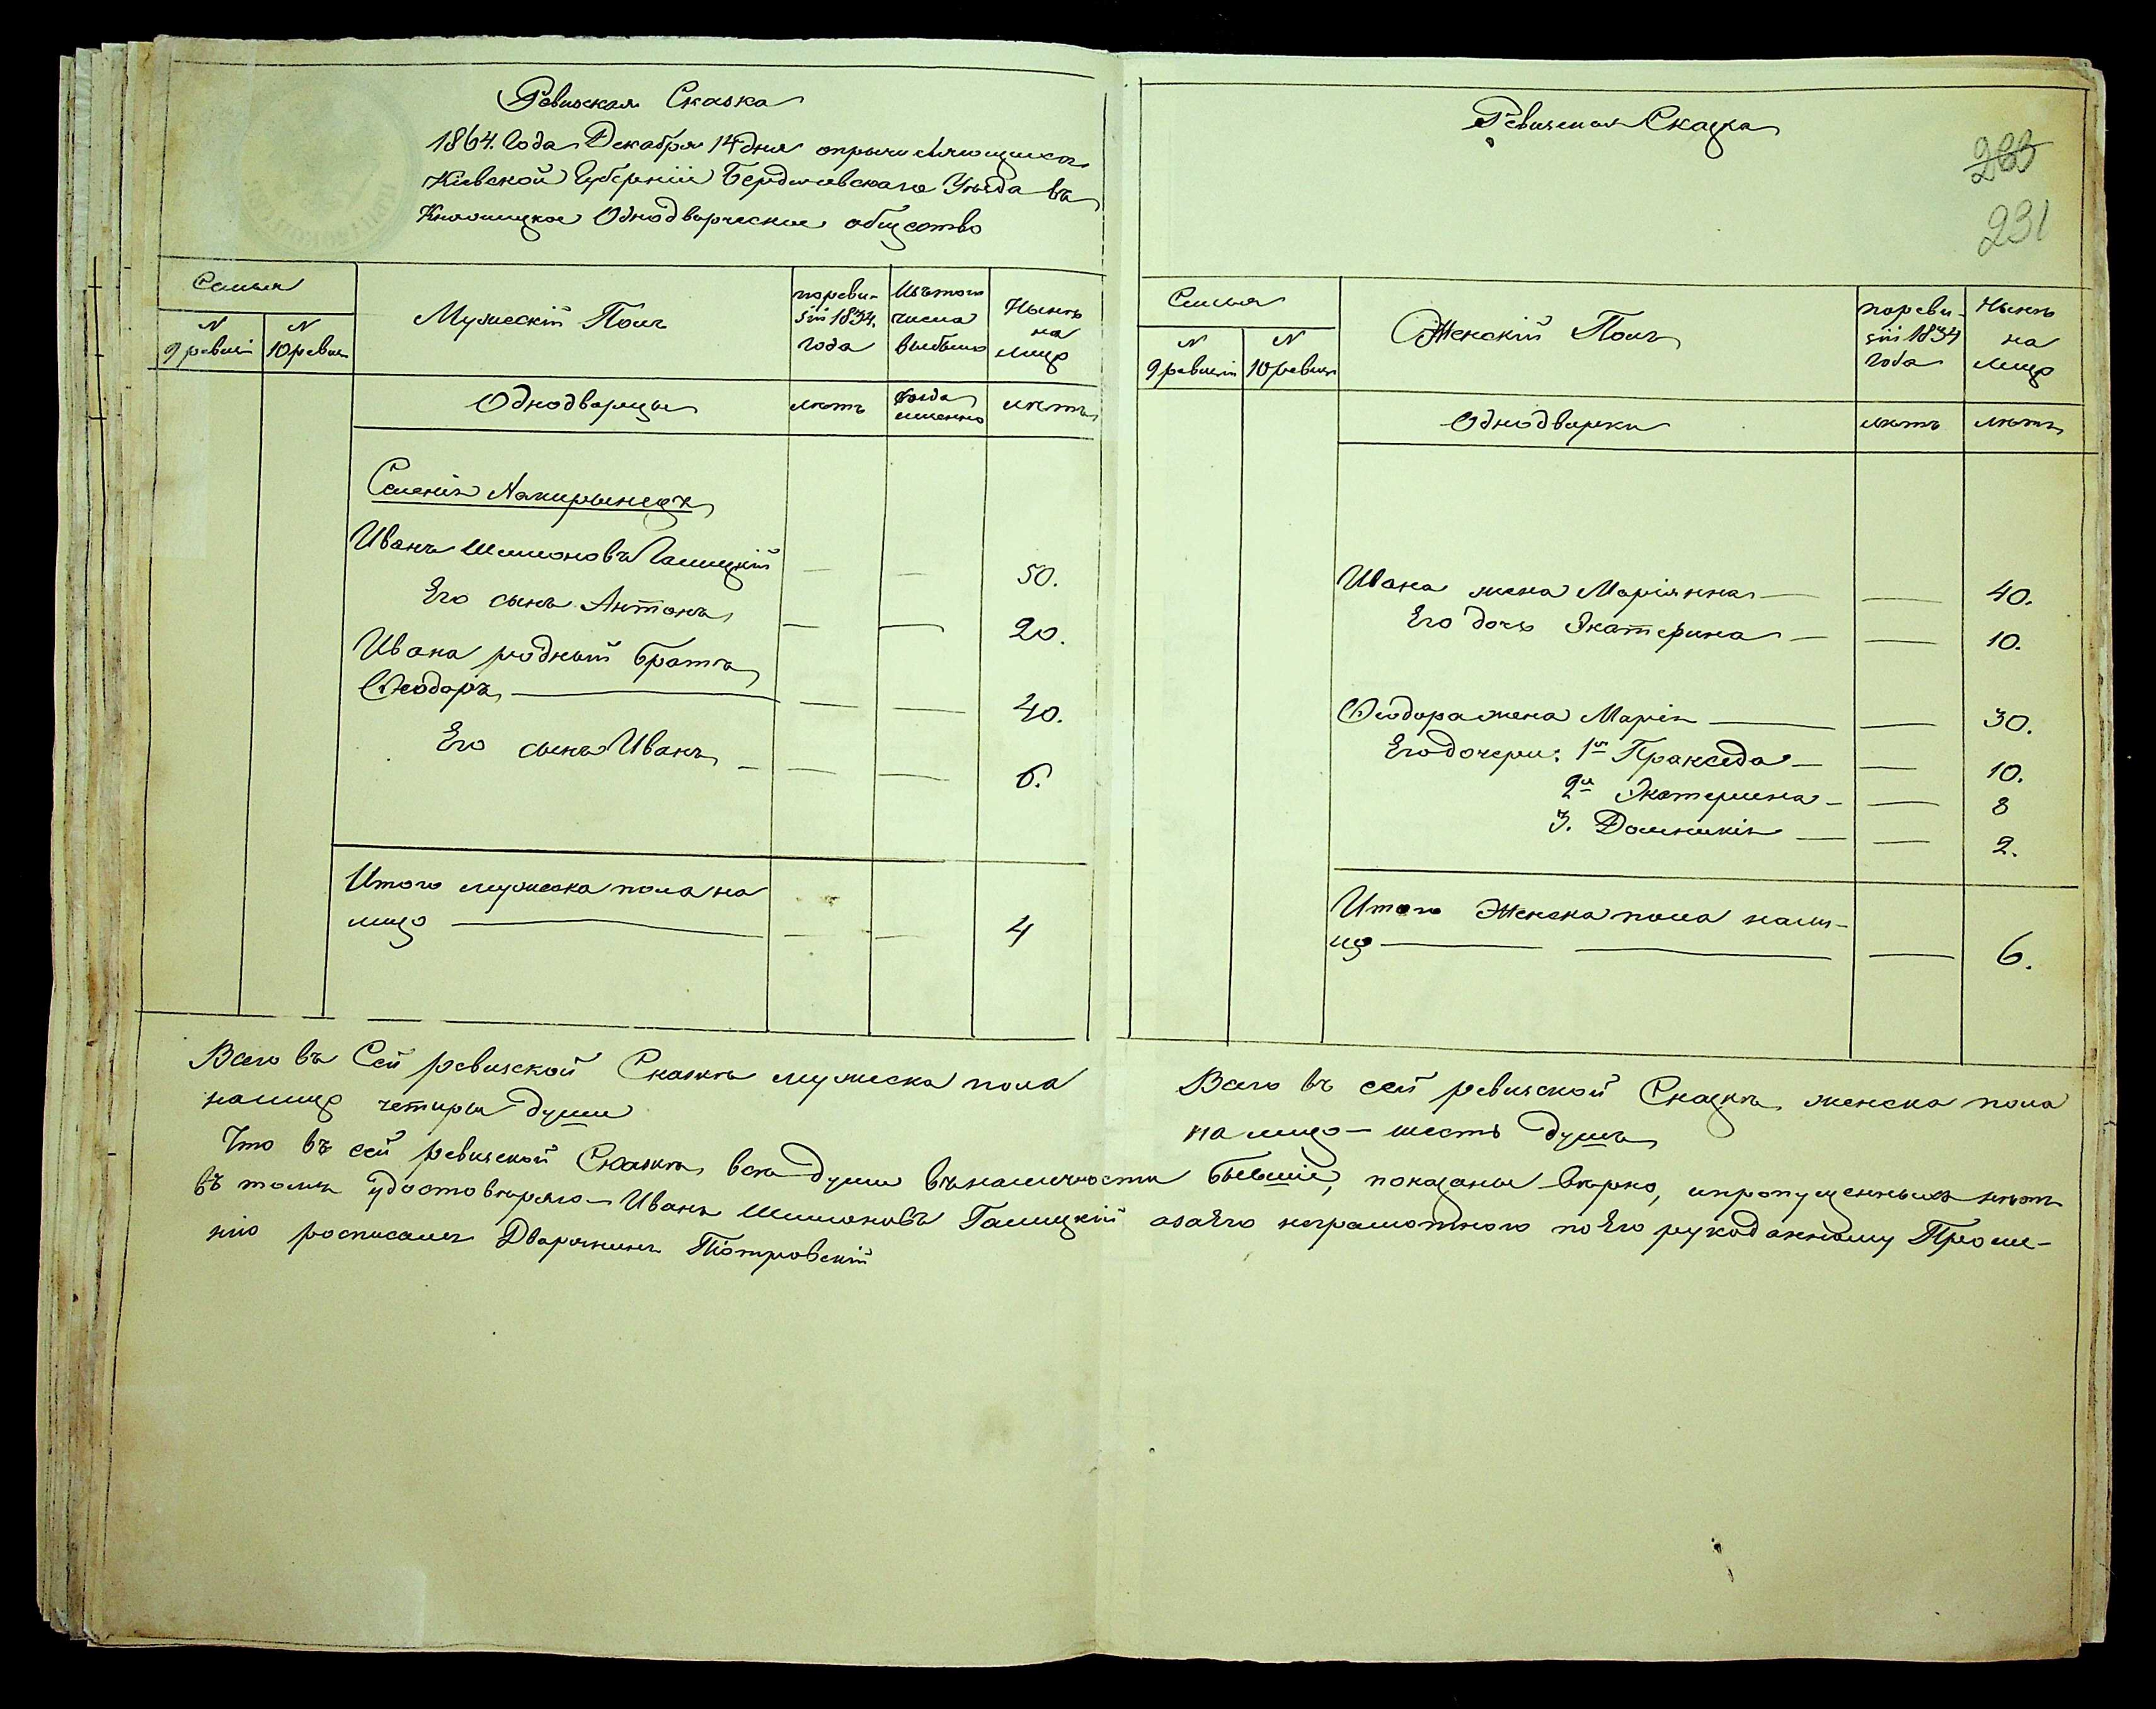 Ревизская Сказка
1864. Года Декабря 14 дня опричисляющихся
Кіевской Губерніи Бердичевскаго Уѣзда въ
Однодворческое общество
Семья
N 9 ревизіи
N 10 ревиз
Мужескій Полъ
По реви-
зіи 1834.
года
Изъ того
числа
выбыло
Нынѣ
на
лицо
Однодворцы
лѣтъ
когда
именно
лѣтъ
Селенія
Иванъ Шимоновъ Галицкій — — 50.
Его сынъ Антонъ — — 20.
Ивана родный братъ
Ѳеодоръ — — — 40.
Его сынъ Иванъ — — — 6.
Итого мужеска пола на
лицо — — — 4
Всего въ Сей ревизской Сказкѣ мужеска пола
налицо четыри души
Ревизская Сказка
233
231
Семья
N 9 ревизіи
N 10 ревизіи
Женскій Полъ
По реви-
зіи 1834
года
Нынѣ
на
лицо
Однодворки
лѣтъ
лѣтъ
Ивана жена Маріянна — — 40.
Его дочь Екатерина — — 10.
Ѳеодора жена Марія — — 30.
Его дочери: 1я Пракседа — — 10.
2я Екатерина — — 8
3. Доминикія — — 2.
Итого Женска пола нали-
цо — — — 6.
Всего въ сей ревизской Сказкѣ женска пола
на лицо — шесть душъ
Что въ сей ревизской Сказкѣ всѣ души въ наличности бывшіе, показаны вѣрно, и пропущенныхъ нѣтъ
въ томъ удостовѣряю — Иванъ Шимоновъ Галицкій а за Его неграмотного по Его рукоданному Проше-
нію росписалъ Дворянинъ Піотровскій